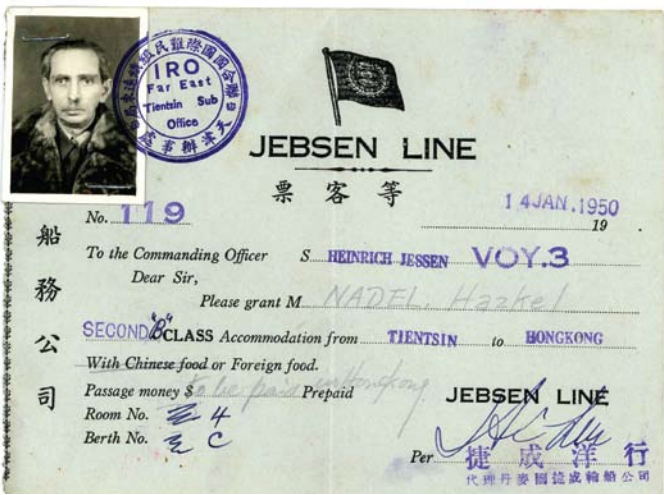 聯合國國際難民組織遠東局
IRO
Far East
Tientsin Sub
Office
天津辦事處
JEBSEN LINE
票客等
No. 119
14 JAN. 1950
19
To the Commanding Officer S. HEINRICH JESSEN VOY.3
Dear Sir,
Please grant M NADEL, Hazkel
SECOND "B" CLASS Accomodation from TIENTSIN to HONGKONG
With Chinese food or Foreign food.
Passage money $ to be paid in Hongkong Prepaid
JEBSEN LINE
Room No. 4
Berth No. C
Per
捷成洋行
代理丹麥國捷成輪船公司
船務公司